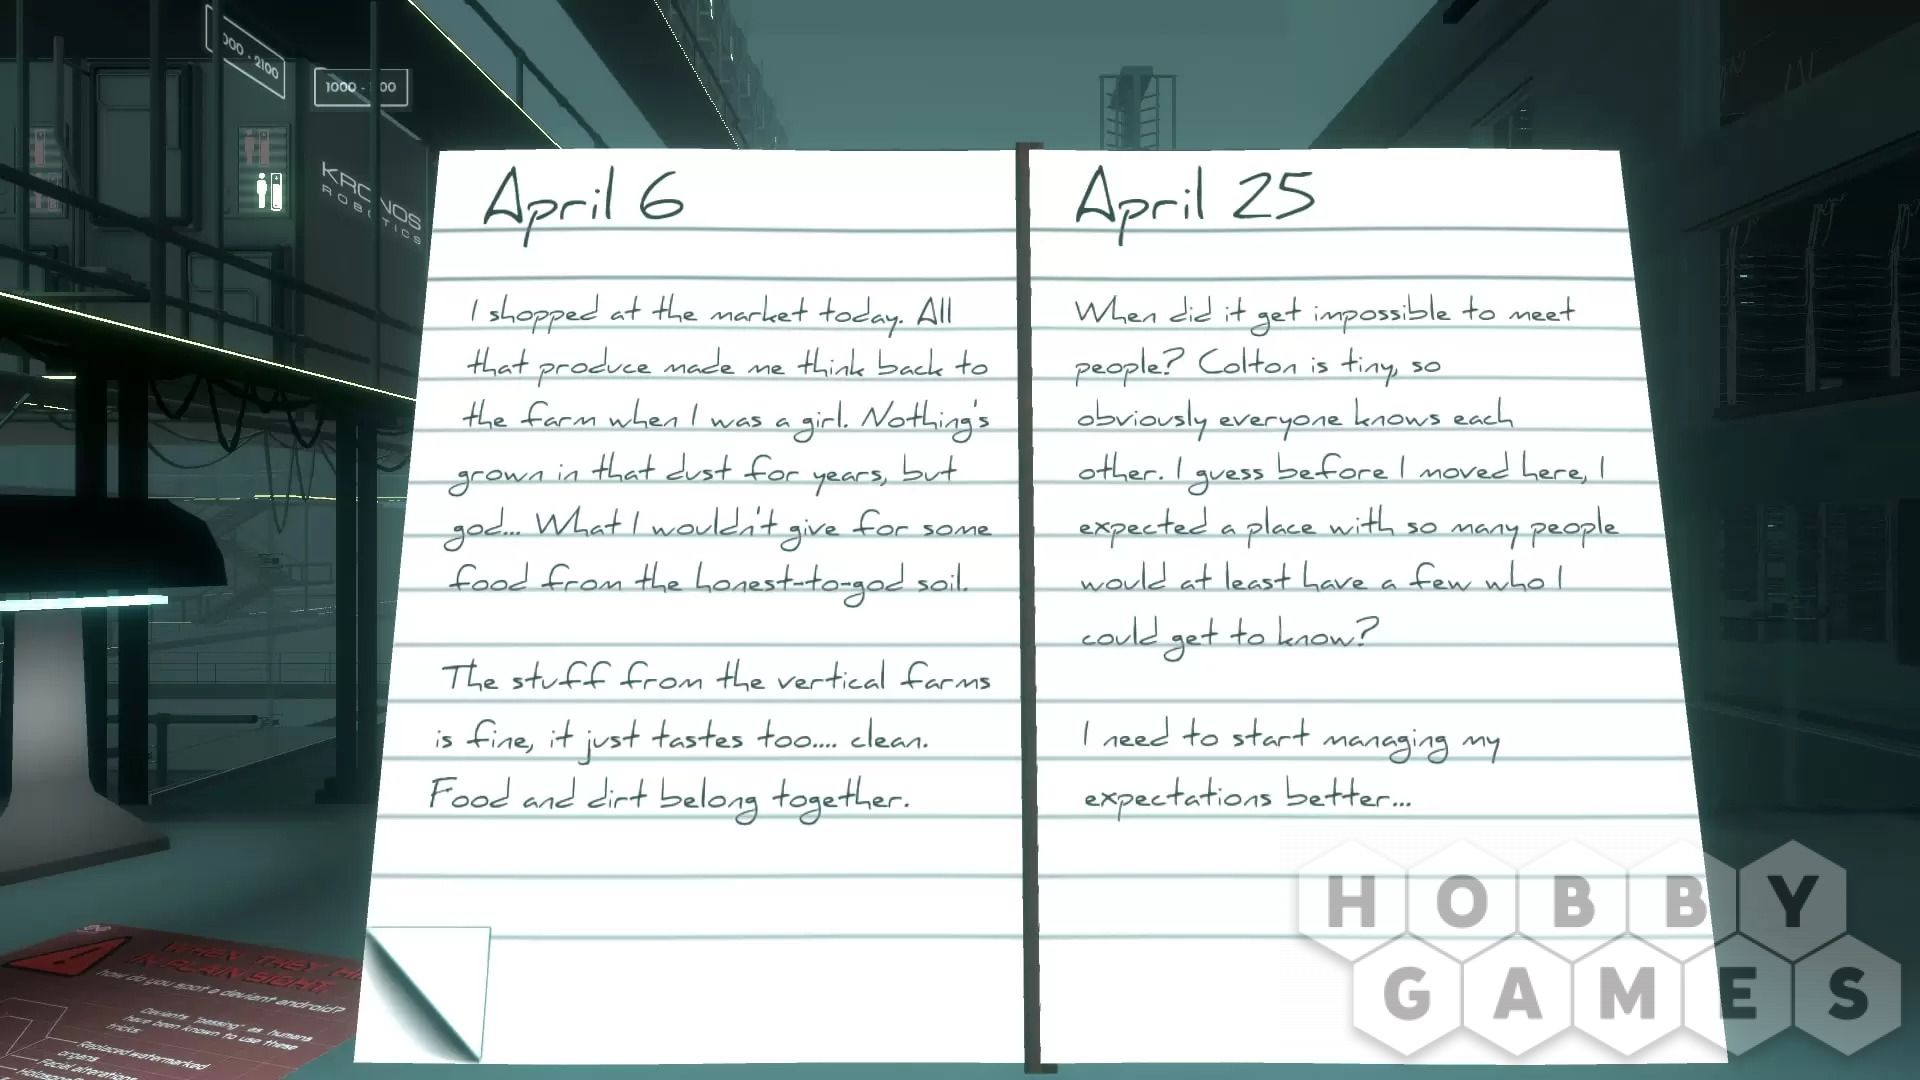 000 - 2100
1000 - 00
KRONOS
ROBOTICS
April 6
I shopped at the market today. All
that produce made me think back to
the farm when I was a girl. Nothing's
grown in that dust for years, but
god... What I wouldn't give for some
food from the honest-to-god soil.
The stuff from the vertical farms
is fine, it just tastes too.... clean.
Food and dirt belong together.
April 25
When did it get impossible to meet
people? Colton is tiny, so
obviously everyone knows each
other. I guess before I moved here, I
expected a place with so many people
would at least have a few who I
could get to know?
I need to start managing my
expectations better...
WHEN THEY
IN PLAIN SIGHT
how do you spot a deviant android?
Deviants "passing" as humans
have been known to use these
tricks:
Replaced watermarked
organs
Facial alterations
HOBBY
GAMES